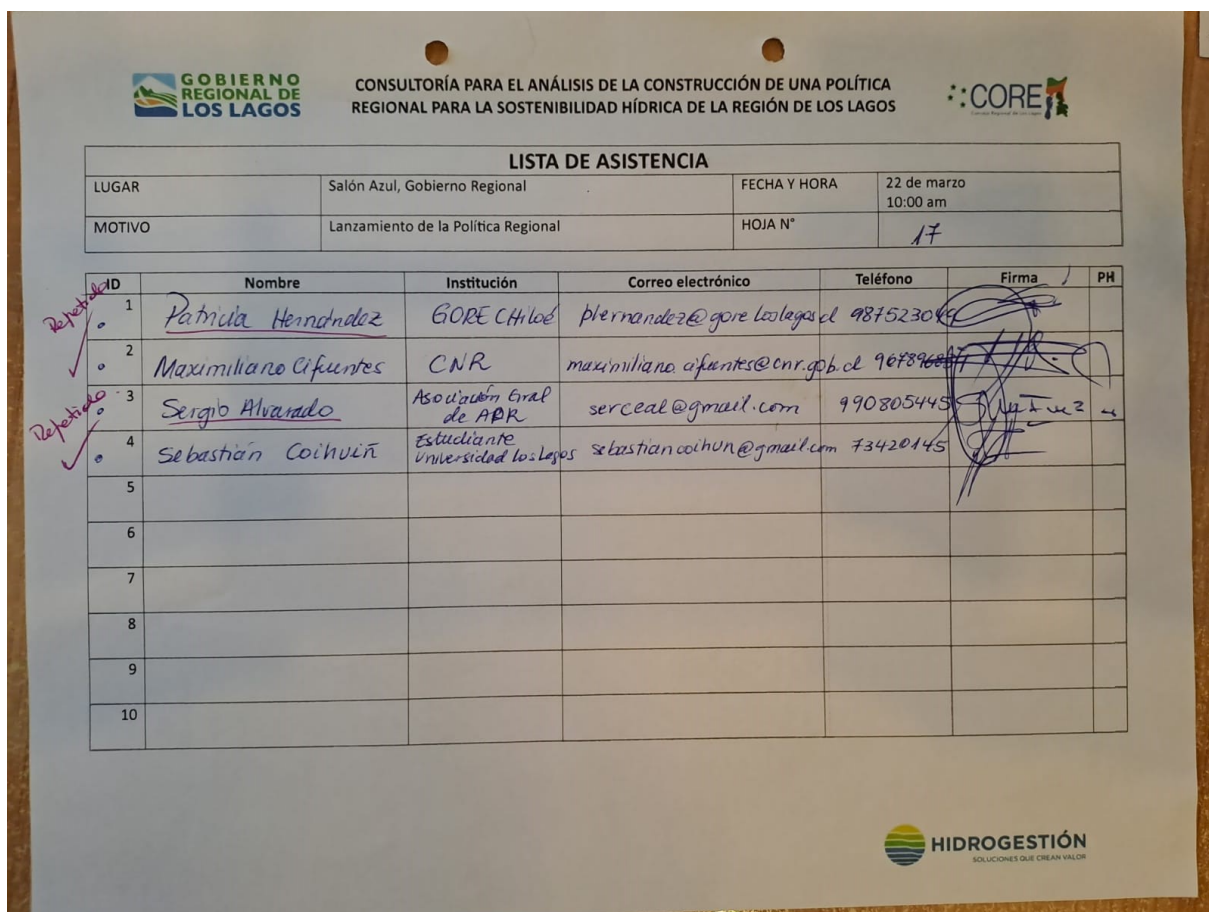 GOBIERNO
REGIONAL DE
LOS LAGOS
CONSULTORÍA PARA EL ANÁLISIS DE LA CONSTRUCCIÓN DE UNA POLÍTICA
REGIONAL PARA LA SOSTENIBILIDAD HÍDRICA DE LA REGIÓN DE LOS LAGOS
CORE
LISTA DE ASISTENCIA
LUGAR Salón Azul, Gobierno Regional FECHA Y HORA 22 de marzo
10:00 am
MOTIVO Lanzamiento de la Política Regional HOJA N° 17
ID Nombre Institución Correo electrónico Teléfono Firma PH
Repetido 1 Patricia Hernández GORE CHiloé 
2 Maximiliano Cifuentes CNR maximiliano.cifuentes@cnr.gob.cl
Repetido 3 Sergio Alvarado Asociación Gral
de APR serceal@gmail.com 990805445
4 Sebastián Coihuiñ Estudiante
Universidad Los Lagos sebastiancoihun@gmail.com 73420145
5
6
7
8
9
10
HIDROGESTIÓN
SOLUCIONES QUE CREAN VALOR